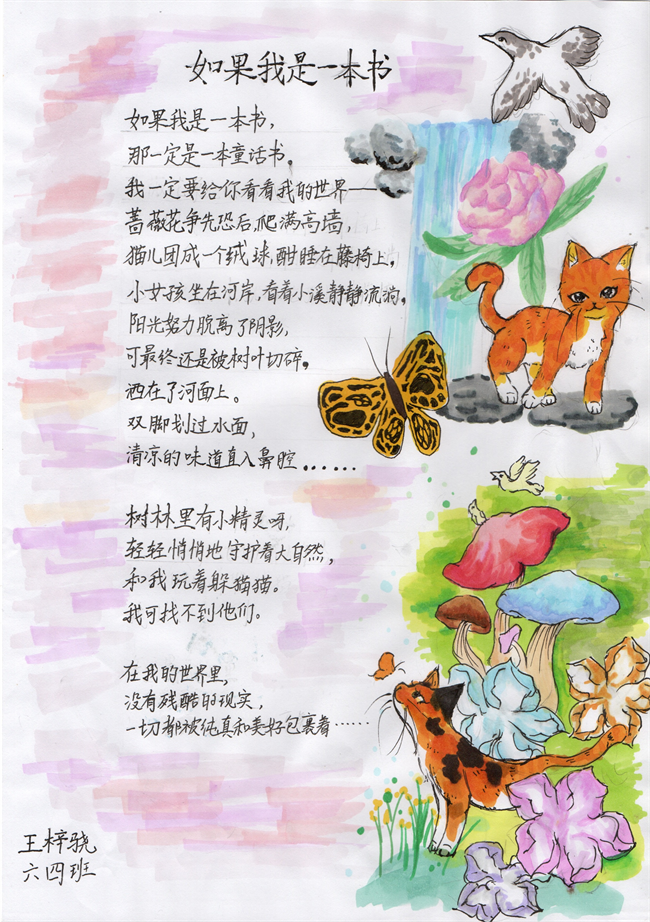 如果我是一本书
如果我是一本书，
那一定是一本童话书。
我一定要给你看看我的世界——
蔷薇花争先恐后爬满高墙，
猫儿团成一个绒球，酣睡在藤椅上，
小女孩坐在河岸，看着小溪静静流淌。
阳光努力脱离了阴影，
可最终还是被树叶切碎。
洒在了河面上。
双脚划过水面，
清凉的味道直入鼻腔……
树林里有小精灵呀，
轻轻悄悄地守护着大自然，
和我玩着躲猫猫。
我可找不到他们。
在我的世界里，
没有残酷的现实，
一切都被纯真和美好包裹着……
王梓骁
六四班